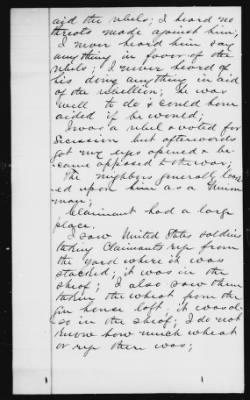 aid the rebels; I heard no
threats made against him;
I never heard him say
any thing in favor of the
rebels; I never heard of
his doing any thing in aid
of the rebellion; he was
well to do & could have
aided if he would;
I was a rebel & voted for
Secession but afterwards
got my eyes opened & be-
came opposed to the war;
The neighbors generally look-
ed upon him as a Union
man;
Claimant had a large
place.
I saw United States soldiers
taking Claimants rye from
the yard where it was
stacked; it was in the
sheaf; I also saw them
taking the wheat from the
gin house loft; it was al-
so in the sheaf; I do not
know how much wheat
or rye there was;